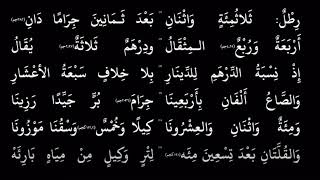 رِطْلٌ: ثَلَاثُمِئَةٍ وَاثْنَانِ بَعْدَ ثَمَانِينَ جِرَامًا دَانِ
أَرْبَعَةٌ وَرُبْعٌ المِثْقَالُ وَدِرْهَمٌ ثَلَاثَةٌ يُقَالُ
إِذْ نِسْبَةُ الدِّرْهَمِ لِلدِّينَارِ بِلَا خِلَافٍ سَبْعَةُ الأَعْشَارِ
وَالصَّاعُ أَلْفَانِ بِأَرْبَعِينَا جِرَامَ بُرٍّ جَيِّدًا رَزِينَا
وَمِئَةٌ وَاثْنَانِ وَالعِشْرُونَا كِيلًا وَخُمْسٌ وَسْقُنَا مَوْزُونَا
وَالقُلَّتَانِ بَعْدَ تِسْعِينَ مِئَه لِتْرٍ وَكِيلٍ مِنْ مِيَاهٍ بَارِئَه